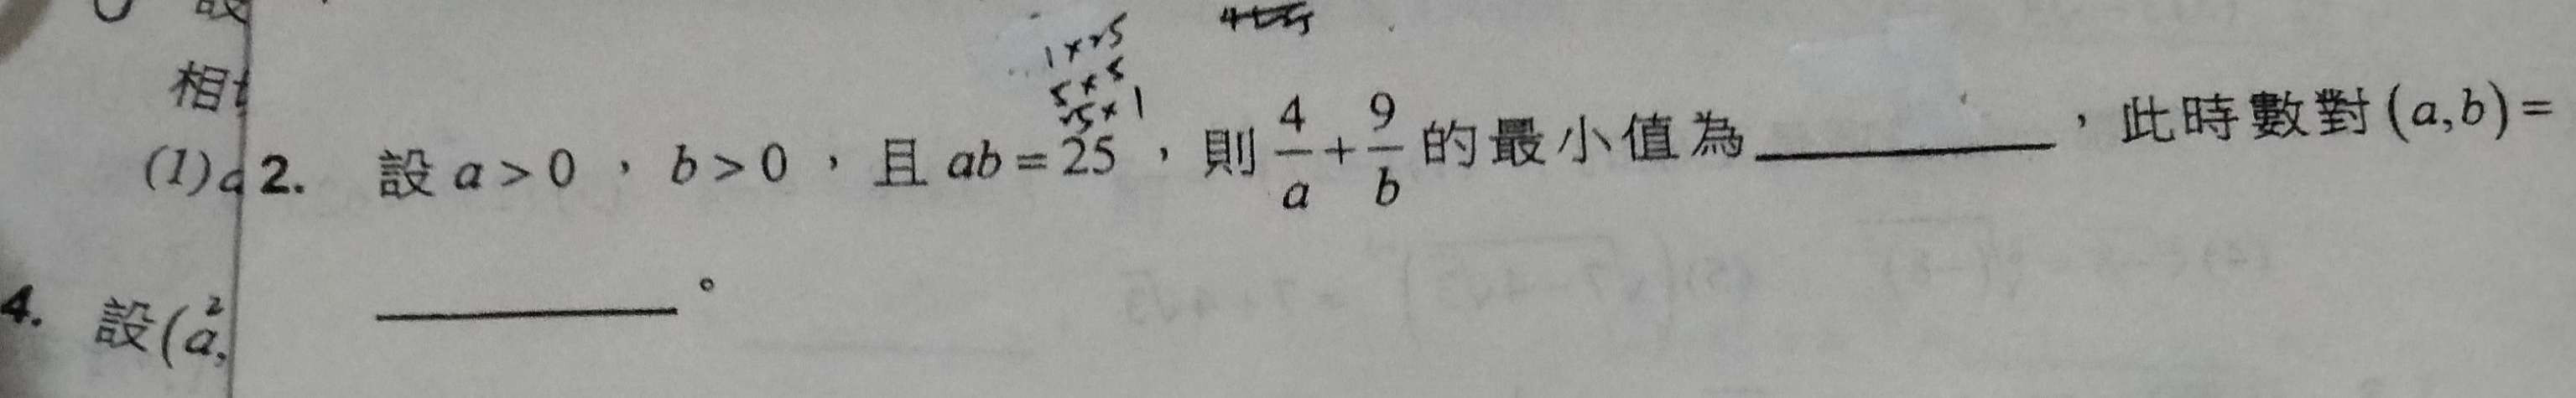 4+25
1×25
5×5
25×1
相
(1)a
2. 設 a > 0 , b > 0 , 且 ab = 25 , 則 4/a + 9/b 的最小值為 ________ , 此時數對 (a,b) =
________ 。
4. 設(a²,